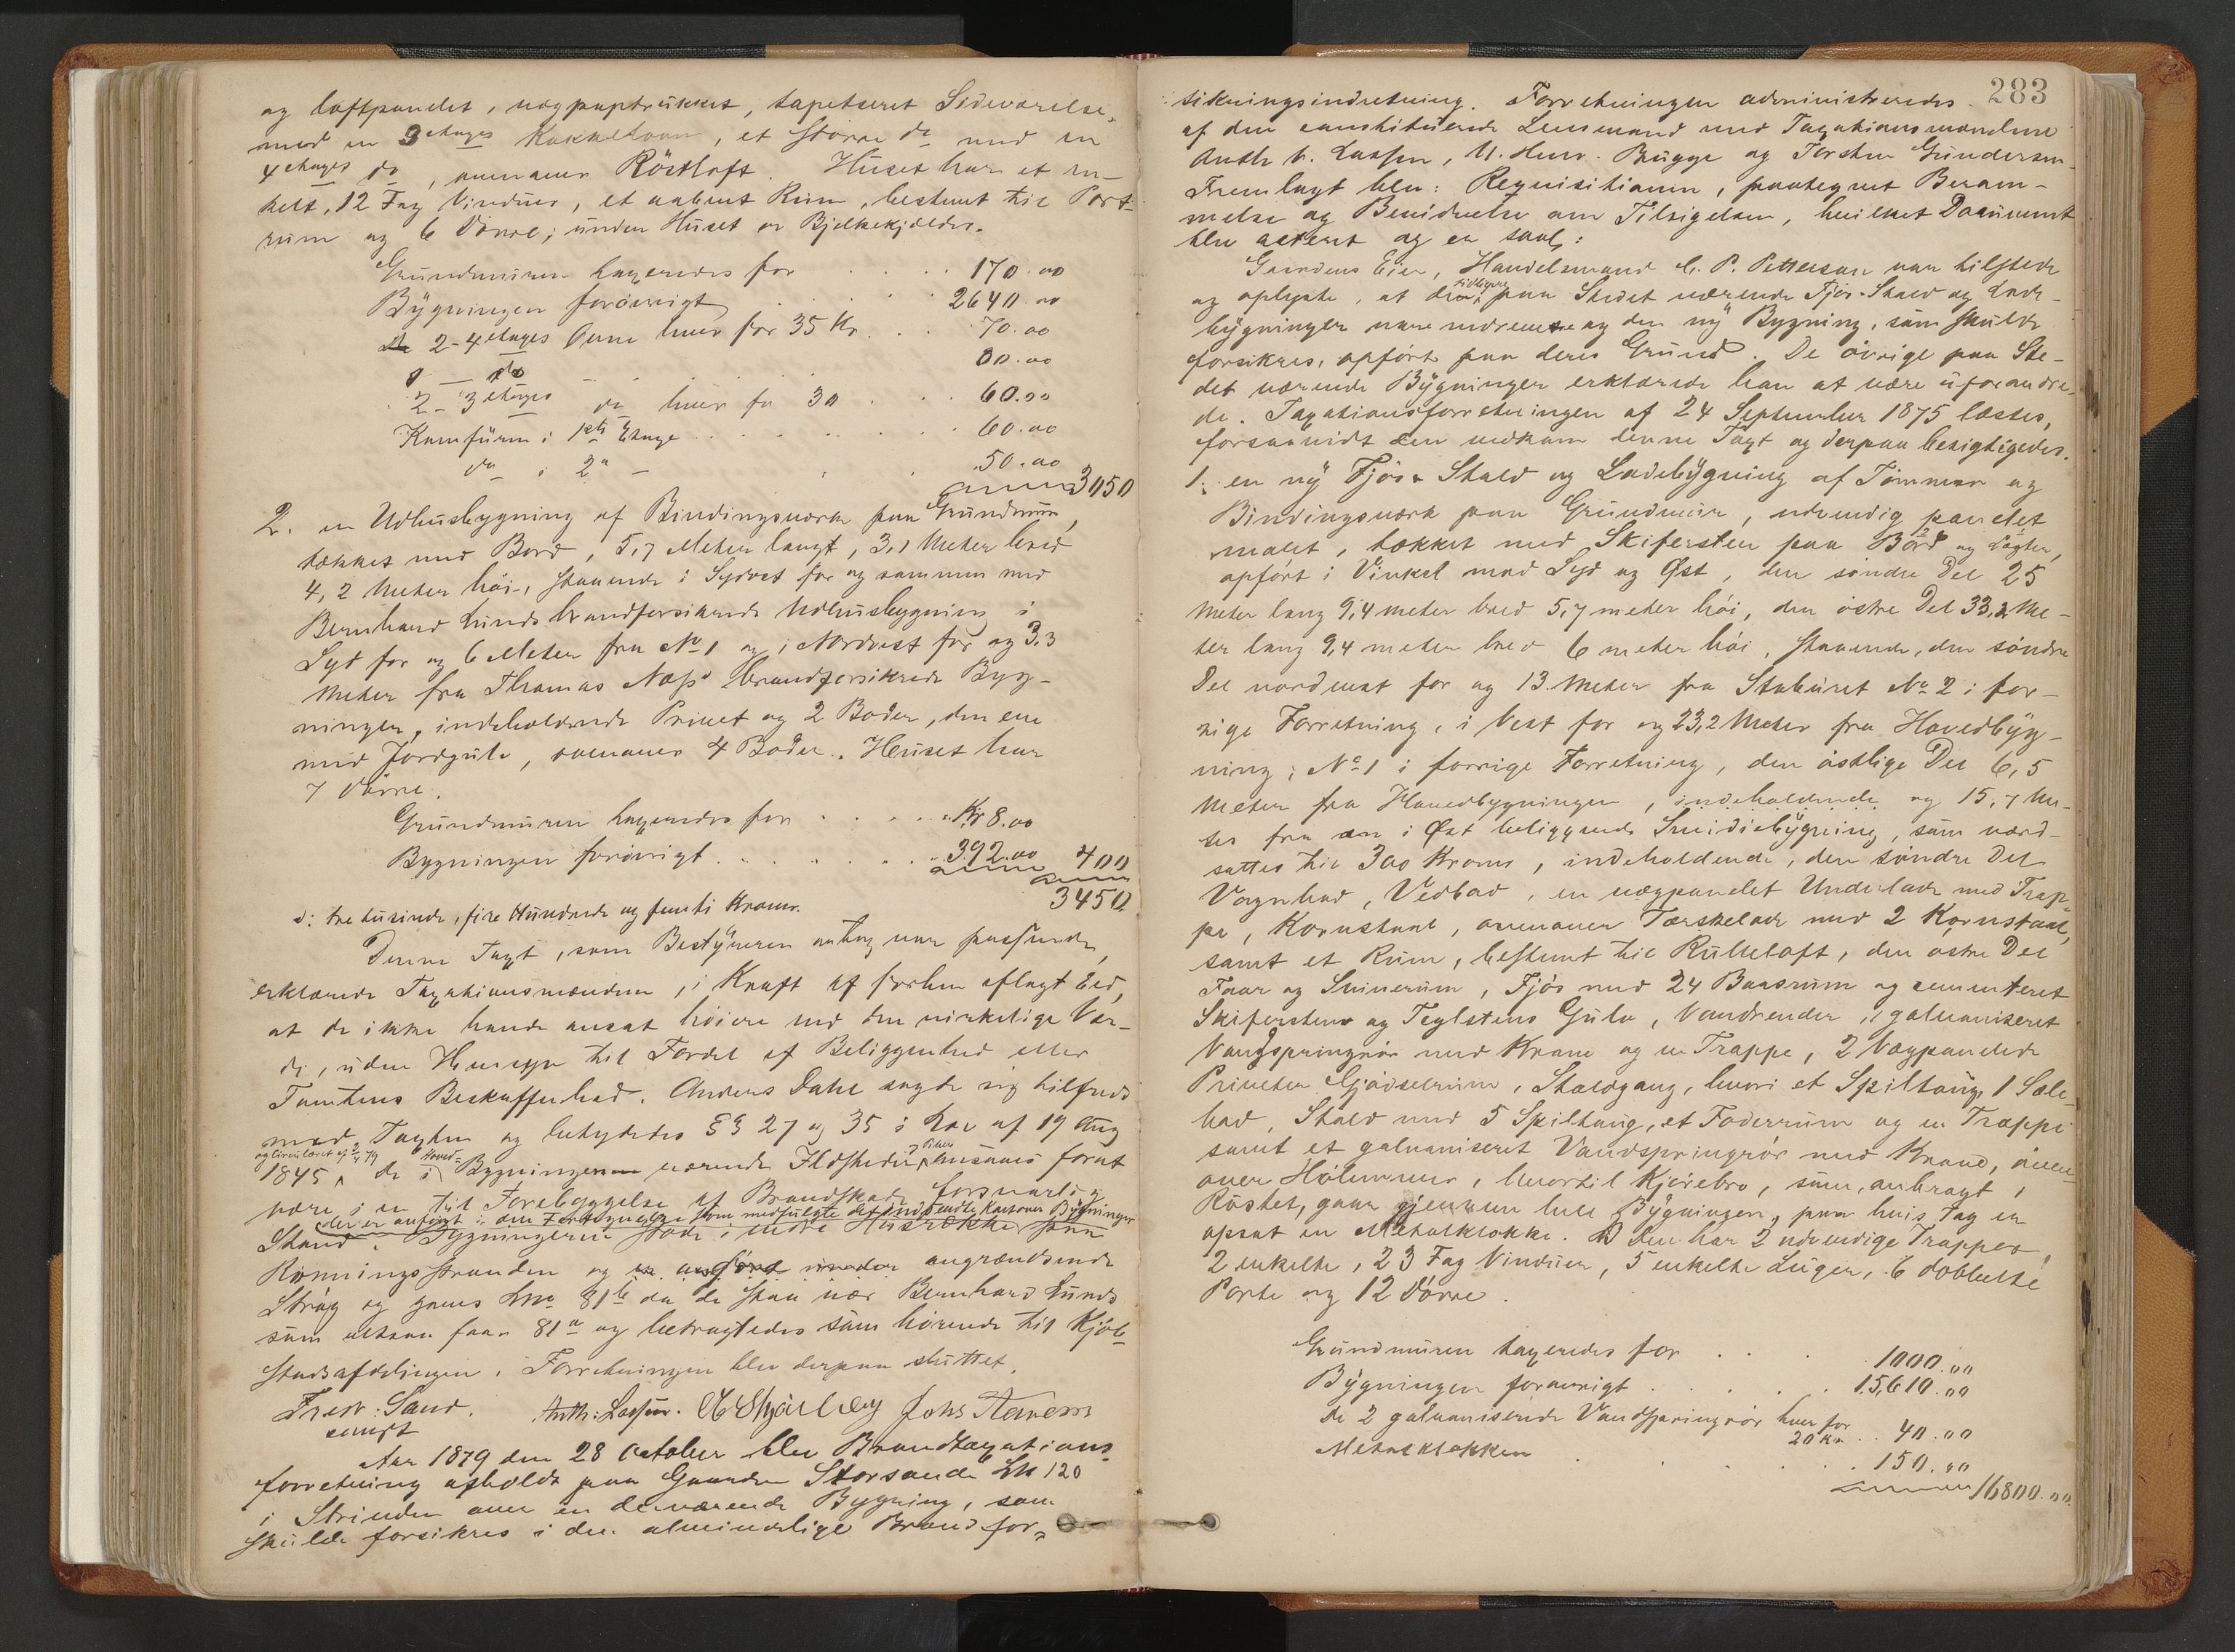 og loftpanelet, vægpaptrukket, tapetseret Sideværelse,
med en 3 etages Kakkelovn, et større do med en
4 etages do, ovenover Röstloft. Huset har et en-
kelt, 12 Fag Vinduer, et aabent Rum, bestemt til Port-
rum og 6 Dörre; under Huset er Bjelkekjelder.
Grundmuren taxeredes for . . . . 170.00
Bygningen forövrigt . . . . 2640.00
2 - 4 etages Ovne hver for 35 Kr. . . 70.00
00.00
2 - 3 etages do hver for 30 . . . 60.00
Komfüren i 1ste Etage . . . . . . 60.00
do i 2n — . . . 50.00
3050
2. en Udhusbygning af Bindingsværk paa Grundmur,
tækket med Bord, 5,7 Meter langt, 3,1 Meter bred
4,2 Meter höi, staaende i Sydvest for og sammen med
Bernhard Lunds brandforsikrede Udhusbygning i
Syd for og 6 Meter fra No 1 og i Nordvest for og 3,3
Meter fra Thomas Næss' brandforsikrede Byg-
ninger, indeholdende Privet og 2 Boder, den ene
med Jordgulv, ovenover 4 Boder. Huset har
7 Dörre.
Grundmuren taxeredes for . . . . Kr 8.00
Bygningen forövrigt . . . . . . 392.00 400
3450
ɔ: tre tusinde, fire Hundrede og femti Kroner.
Denne Taxt, som Bestyreren antog var passende,
erklærede Taxationsmændene, i Kraft af forhen aflagt Eed,
at de ikke havde ansat höiere end den virkelige Vær-
di, uden Hensyn til Fordel af Beliggenhed eller
Tomtens Beskaffenhed. Anders Dahl sagde sig tilfreds
med Taxten og betydedes §§ 27 og 35 i Lov af 19 Aug
og Circulæret af 79 Hoved-
1845, de i Bygningen værende Ildsteder, ansaaes forat
være i en til Forebyggelse af Brandskade forsvarlig
der er anført i den Fortegnelse som medfulgte
Stand. Bygningerne staae i indre Husrække paa
Rømningsstranden og angrændsende
Strøg og gives Lno 81b da de staa nær Bernhard Lunds
som altsaa faar 81a og betragtedes som hörende til Kjöb-
stadsafdelingen. Forretningen blev derpaa sluttet.
Fredr: Sand. Anth: Lassen. Johs Stavem
const
Aar 1879 den 28 October blev Brandtaxations-
forretning afholdt paa Gaarden Storsande LN 120
i Strinden over en derværende Bygning, som
skulde forsikres i den almindelige Brandfor-
283
sikringsindretning. Forretningen administreredes
af den constituerede Lensmand med Taxationsmændene
Anth. C. Lassen, M. Henr. Brügge og Torsten Gundersen.
Fremlagt blev: Requisitionen, paategnet Beram-
melse og Bevidnelse om Tilsigelsen, hvilket Document
blev acteret og er saal:
Gaardens Eier, Handelsmand C. P. Petterson var tilstede
tidligere
og oplyste, at den paa Stedet værende Fjös- Stald og Lade-
bygninger vare nedrevne og den ny Bygning, som skulde
forsikres, opfört paa deres Grund. De övrige paa Ste-
det værende Bygninger erklærede han at være uforandre-
de. Taxationsforretningen af 24 September 1875 læstes,
forsaavidt den vedkom denne Taxt og derpaa besigtigedes.
1. en ny Fjös- Stald og Ladebygning af Tömmer og
Bindingsværk paa Grundmur, udvendig panelet
malet, tækket med Skifersten paa Bord og Lægter,
opfört i Vinkel mod Syd og Øst, den söndre Del 25
Meter lang 9,4 meter bred 5,7 meter höi, den östre Del 33,2 Me-
ter lang 9,4 meter bred 6 meter höi, staaende, den söndre
Del nordenst for og 13 Meter fra Stabüret No 2 i for-
rige Forretning, i Vest for og 23,2 Meter fra Hovedbyg-
ning, No 1 i forrige Forretning, den östlige Del 6,5
Meter fra Hovedbygningen, indeholdende og 15,7 Me-
ter fra en i Øst beliggende Smidiebygning, som værd-
sattes til 300 Kroner, indeholdende, den söndre Del
Vognbod, Vedbod, en vægpanelet Underlade med Trap-
pe, Kornstaal, ovenover Tærskelade med 2 Kornstaal,
samt et Rum, bestemt til Rulleloft, den östre Del
Faar og Svinerum, Fjös med 24 Baasrum og cementeret
Skiferstens og Teglstens Gulv, Vandrender, galvaniseret
Vandspringrör med Krane og en Trappe, 2 Vægpanelede
Priveter Gjödselrum, Staldgang, hvori et Spiltoug, 1 Sæle-
bod, Stald med 5 Spiltoug, et Foderrum og en Trappe
samt et galvaniseret Vandspringrör med Krane, oven-
over Hölemmer, hvortil Kjörebro, som, anbragt i
Röstet, gaar gjennem hele Bygningen, paa hvis Tag er
opsat en Metalklokke. Den har 2 udvendige Trapper,
2 enkelte, 23 Fag Vinduer, 5 enkelte Luger, 6 dobbelte
Porte og 12 Dörre.
Grundmuren taxeredes for . . . 1000.00
Bygningen forøvrigt . . . . . 15,610.00
De 2 galvaniserede Vandspringrör hver for
20 Kr . . 40.00
Metalklokken . . . . . . 150.00
16800.00.